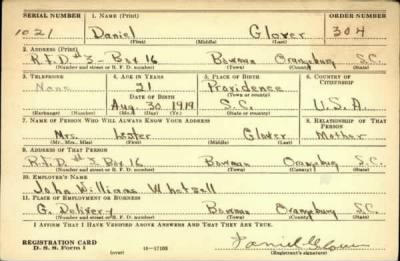 SERIAL NUMBER 1. NAME (Print) ORDER NUMBER
1021 Daniel Glover 304
(First) (Middle) (Last)
2. ADDRESS (Print)
R.F.D #3 - Box 16 Bowman Orangeburg S.C.
(Number and street or R. F. D. number) (Town) (County) (State)
3. TELEPHONE 4. AGE IN YEARS 5. PLACE OF BIRTH 6. COUNTRY OF CITIZENSHIP
None 21 Providence
DATE OF BIRTH (Town or county)
Aug. 30 1919 S.C. U.S.A.
(Exchange) (Number) (Mo.) (Day) (Yr.) (State or country)
7. NAME OF PERSON WHO WILL ALWAYS KNOW YOUR ADDRESS 8. RELATIONSHIP OF THAT PERSON
Mrs. Glover Mother
(Mr., Mrs., Miss) (First) (Middle) (Last)
9. ADDRESS OF THAT PERSON
R.F.D #3 Box 16 Bowman Orangeburg S.C.
(Number and street or R. F. D. number) (Town) (County) (State)
10. EMPLOYER'S NAME
John William Whetsell
11. PLACE OF EMPLOYMENT OR BUSINESS
G. Delivery Bowman Orangeburg S.C.
(Number and street or R. F. D. number) (Town) (County) (State)
I AFFIRM THAT I HAVE VERIFIED ABOVE ANSWERS AND THAT THEY ARE TRUE.
REGISTRATION CARD
D. S. S. Form 1 (over) 16-17105 Daniel Glover
(Registrant's signature)